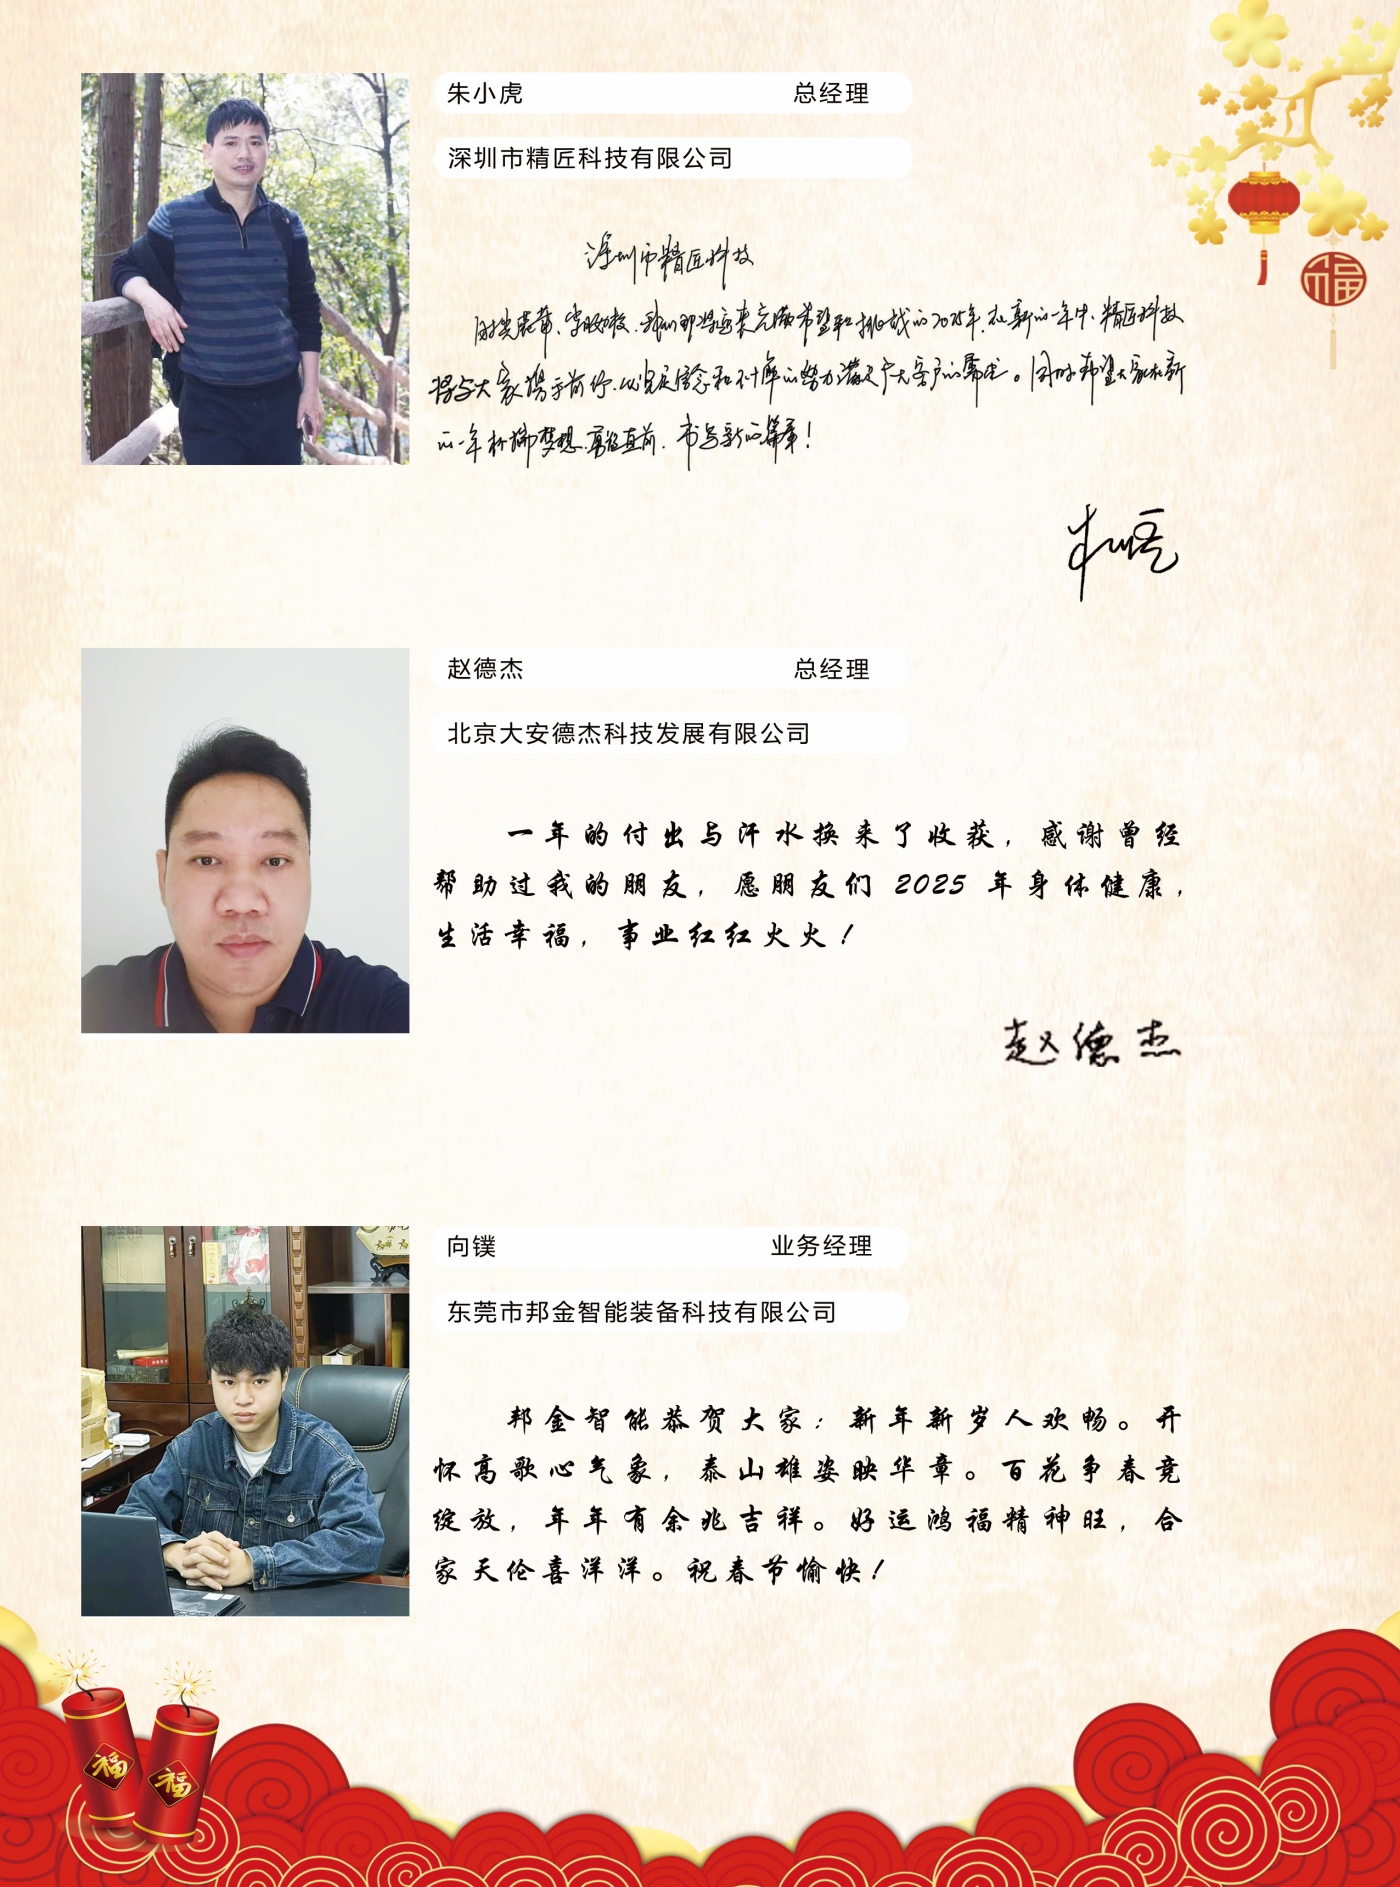 朱小虎 总经理
深圳市精匠科技有限公司
深圳市精匠科技
时光荏苒、岁月如梭、我们即将迎来充满希望和挑战的2025年,在新的一年中,精匠科技
将与大家携手前行,以坚定信念和不懈的努力满足广大客户的需求。同时希望大家在新
的一年拥抱梦想、勇往直前、书写新的篇章!
朱小虎
赵德杰 总经理
北京大安德杰科技发展有限公司
一年的付出与汗水换来了收获，感谢曾经
帮助过我的朋友，愿朋友们 2025 年身体健康，
生活幸福，事业红红火火！
赵德杰
向镤 业务经理
东莞市邦金智能装备科技有限公司
邦金智能恭贺大家：新年新岁人欢畅。开
怀高歌心气象，泰山雄姿映华章。百花争春竞
绽放，年年有余兆吉祥。好运鸿福精神旺，合
家天伦喜洋洋。祝春节愉快！
福
福
福